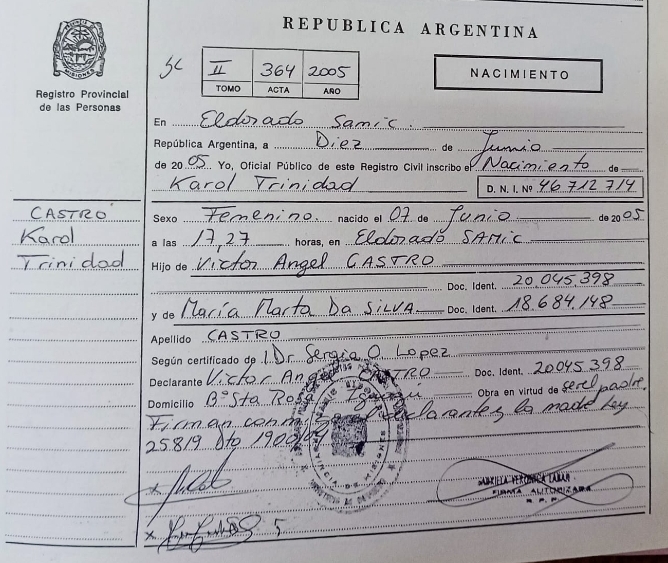 REPUBLICA ARGENTINA
MISIONES
Registro Provincial
de las Personas
II 364 2005
TOMO ACTA AÑO
NACIMIENTO
En Eldorado Samic.
República Argentina, a Diez de Junio
de 2005 Yo, Oficial Público de este Registro Civil inscribo el Nacimiento de
Karol Trinidad D. N. I. Nº 46 712 714
CASTRO
Karol
Trinidad
Sexo Femenino. nacido el 07 de Junio de 2005
a las 17,27 horas, en Eldorado SAMIC
Hijo de Victor Angel CASTRO
Doc. Ident. 20 045 398
y de María Marta Da SILVA Doc. Ident. 18.684.148
Apellido CASTRO
Según certificado de Dr. Sergio O. Lopez
Declarante Victor Doc. Ident. 20045 398
Domicilio Bº Sta Obra en virtud de ser el padre.
Firman declarante y la madre Ley
25819 Dto
FIRMA AUTORIZADA
R. P. P.